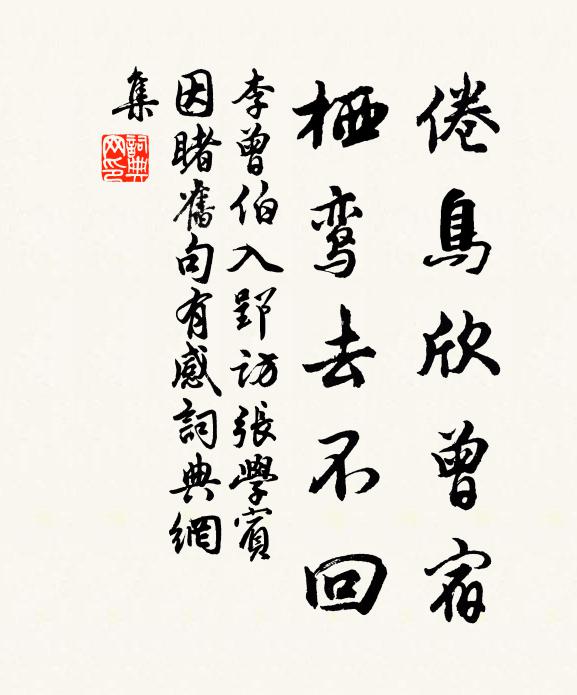 倦鳥欣曾宿
栖鸾去不回
李曾伯入郢访張學賓
因睹舊句有感詞典網
集
詞典網印